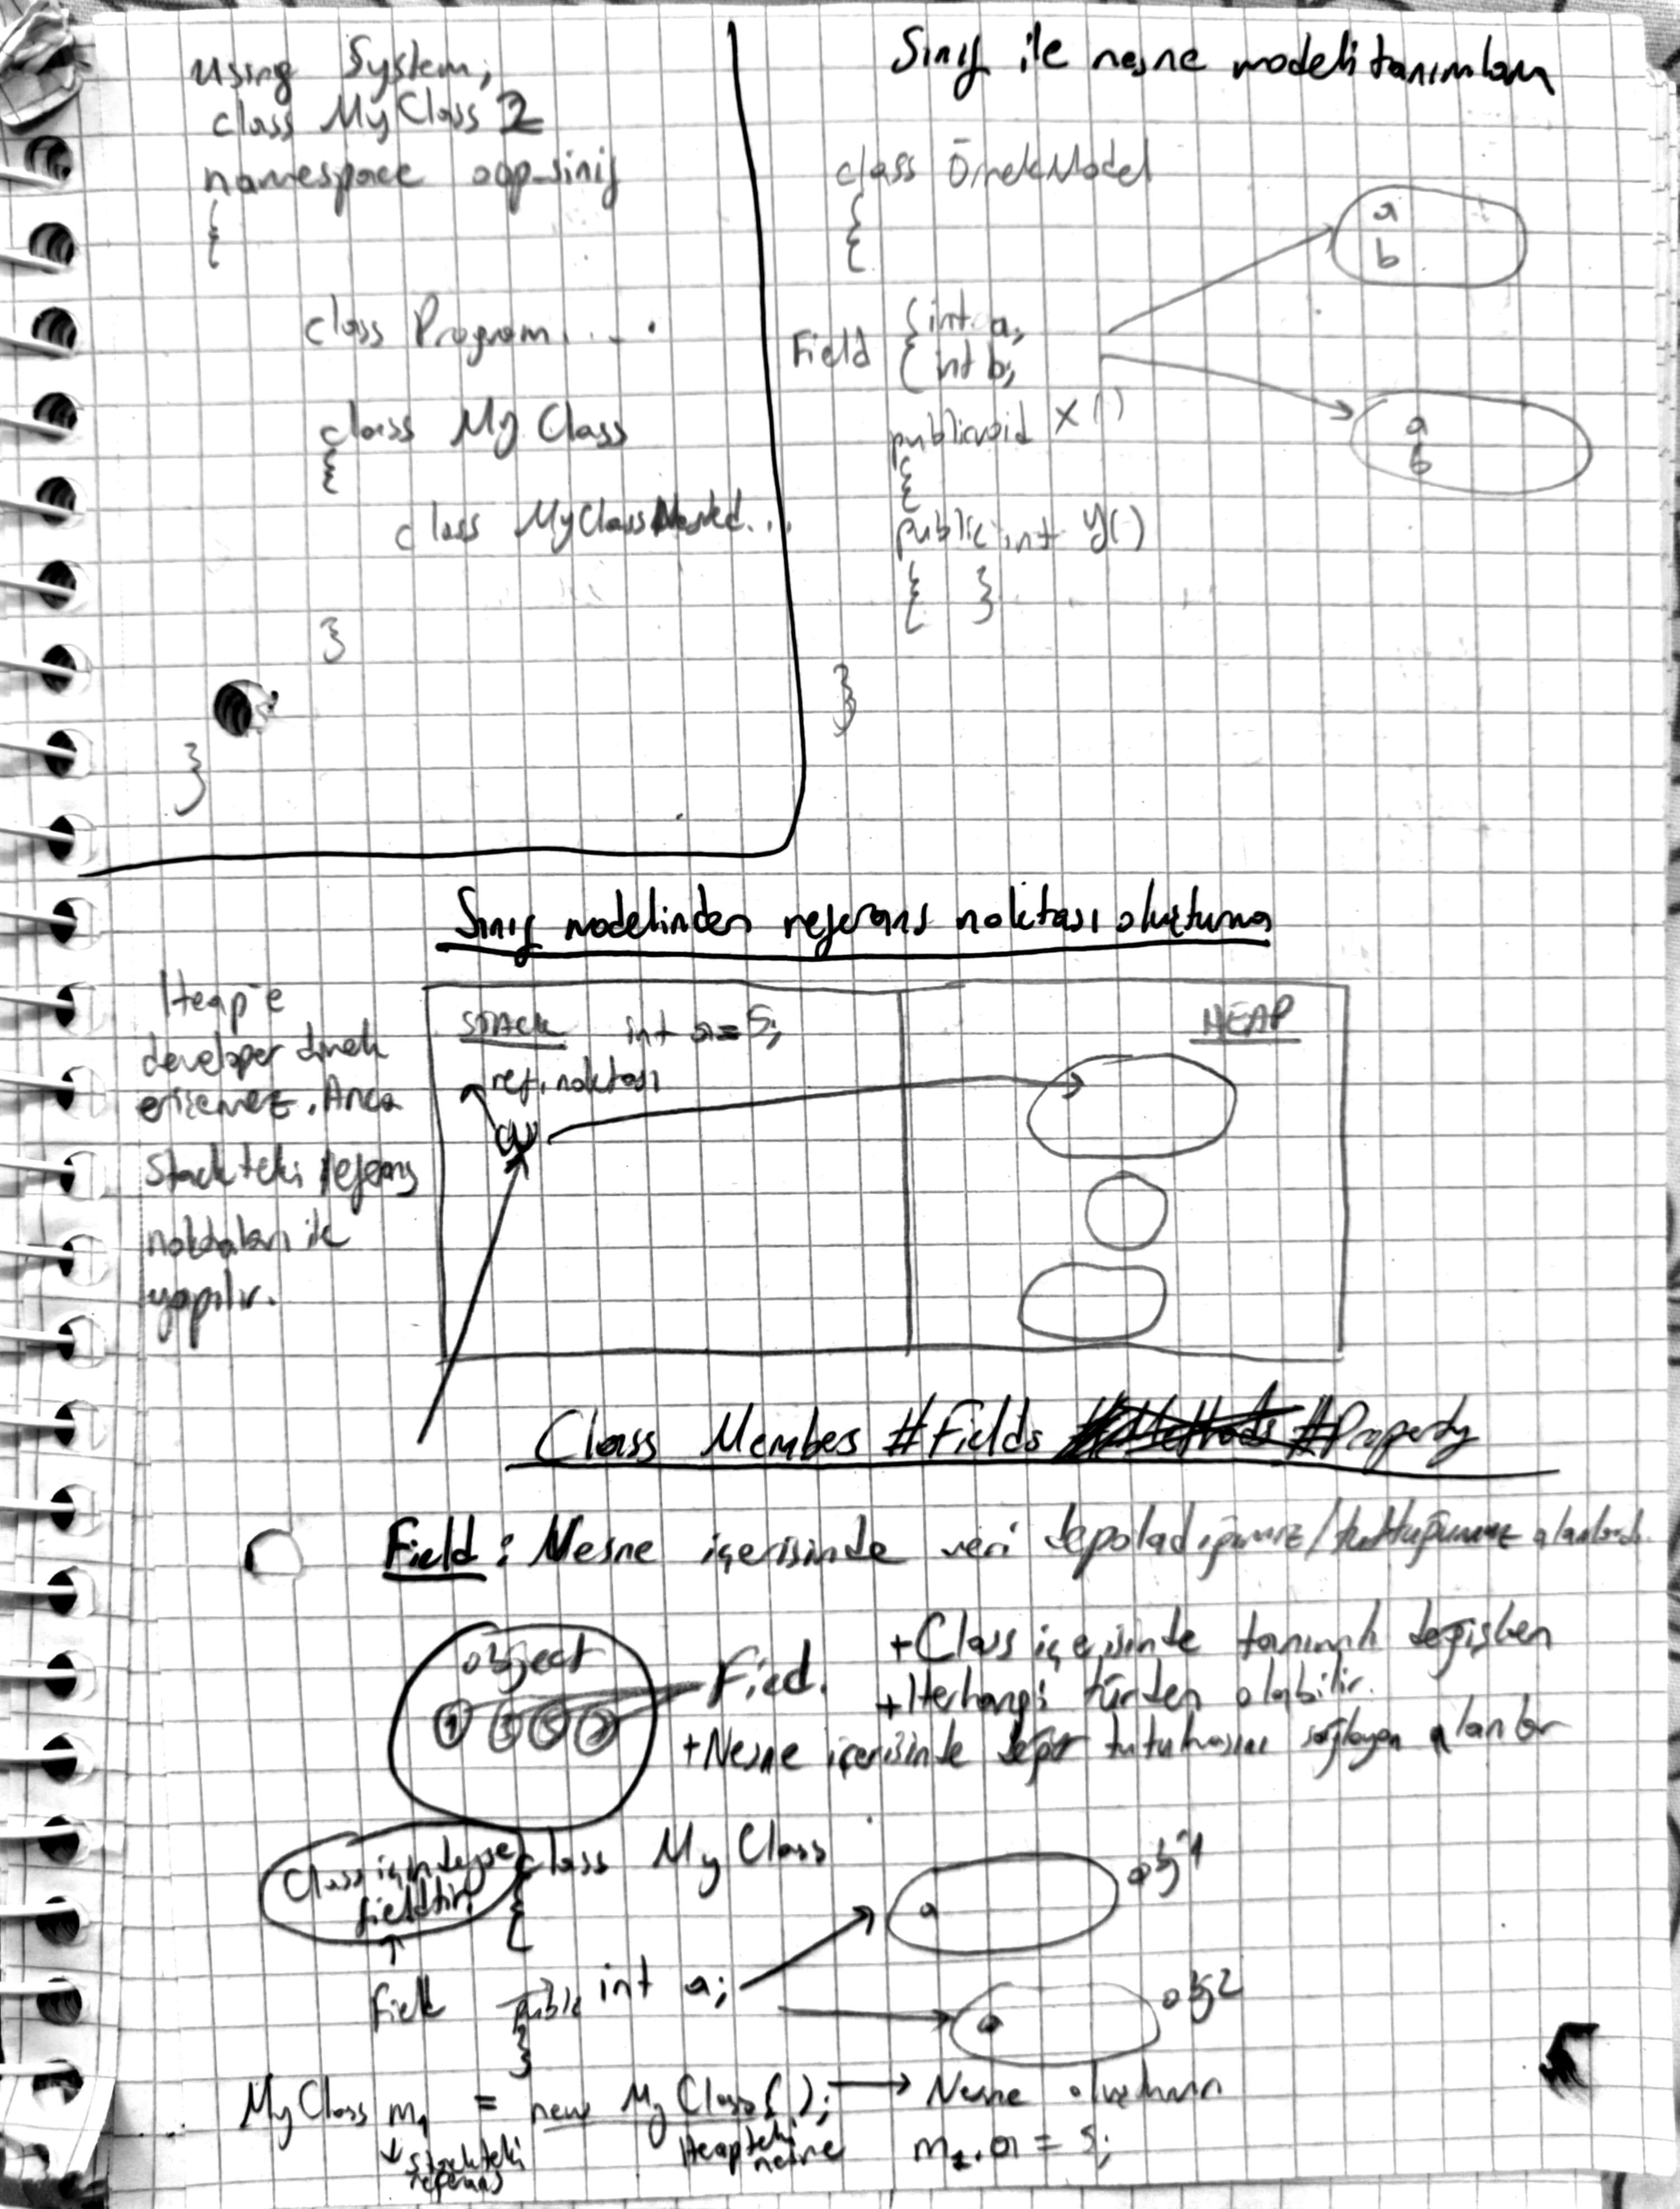 using System;
class MyClass2
namespace oop_sinif
{
class Program....
class MyClass
{
class MyClassNested...
}
}
Sınıf ile nesne modeli tanımlam
class ÖrnekModel
{
Field { int a;
int b;
public void X()
{
public int y()
{ }
}
a
b
a
b
Sınıf modelinden referans noktası oluşturma
Heap'e
developer direk
erişemez. Anca
Stackteki referans
noktaları ile
yapılır.
STACK int a=5;
ref. noktası
HEAP
Class Membes #Fields #Methods #Property
Field: Nesne içerisinde veri depoladığımız/tuttuğumuz alanlardı
object
Fied.
+Class içerisinde tanımlı değişken
+Herhangi türden olabilir.
+Nesne içerisinde değer tutulmasını sağlayan alanlar
Class içindeyse
fielddir.
class MyClass
{
field public int a;
}
a obj1
a obj2
MyClass m1 = new MyClass(); → Nesne
stackteki
referans
Heapteki
nesne
m1.a = 5;